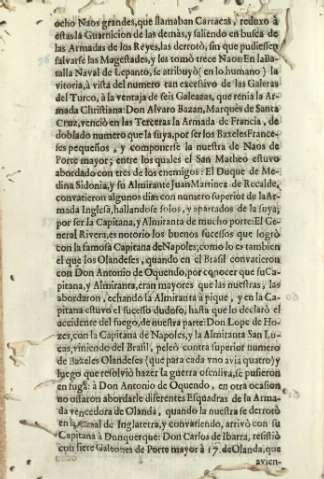 ocho Naos grandes, que llamaban Carracas, reduxo à
estas la Guarnicion de las demàs, y saliendo en busca de
las Armadas de los Reyes, las derrotò, sin que pudiessen
salvarse las Magestades, y les tomò trece Naos. En la Ba-
talla Naval de Lepanto, se atribuyò (en lo humano) la
vitoria, à vista del numero tan excesivo de las Galeras
del Turco, à la ventaja de seis Galeazas, que tenia la Ar-
mada Christiana: Don Alvaro Bazan, Marquès de Santa
Cruz, venciò en las Terceras la Armada de Francia, de
doblado numero que la suya, por ser los Baxeles France-
ses pequeños, y componerse la nuestra de Naos de
Porte mayor; entre los quales el San Matheo estuvo
abordado con tres de los enemigos: El Duque de Me-
dina Sidonia, y su Almirante Juan Martinez de Recalde,
convatieron algunos dias con numero superior de la Ar-
mada Inglesa, hallandose solos, y apartados de la suya;
por ser la Capitana, y Almiranta de mucho porte: El Ge-
neral Rivera, es notorio los buenos sucessos que logrò
con la famosa Capitana de Napoles; como lo es tambien
el que los Olandeses, quando en el Brasil convatieron
con Don Antonio de Oquendo, por conocer que su Ca-
pitana, y Almiranta, eran mayores que las nuestras, las
abordaron, echando la Almiranta à pique, y en la Ca-
pitana estuvo el sucesso dudoso, hasta que lo declarò el
accidente del fuego, de nuestra parte: Don Lope de Ho-
zes, con la Capitana de Napoles, y la Almiranta San Lu-
cas, viniendo del Brasil, peleò contra superior numero
de Baxeles Olandeses (que para cada vno avia quatro) y
luego que resolviò hazer la guerra ofensiva, se pusieron
en fuga: à Don Antonio de Oquendo, en otra ocasion
no osaron abordarle diferentes Esquadras de la Arma-
da vencedora de Olanda, quando la nuestra se derrotò
en la Canal de Inglaterra, y convatiendo, arrivò con su
Capitana à Dunquerque: Don Carlos de Ibarra, resistiò
con siete Galeones de Porte mayor à 17. de Olanda, que
avien-